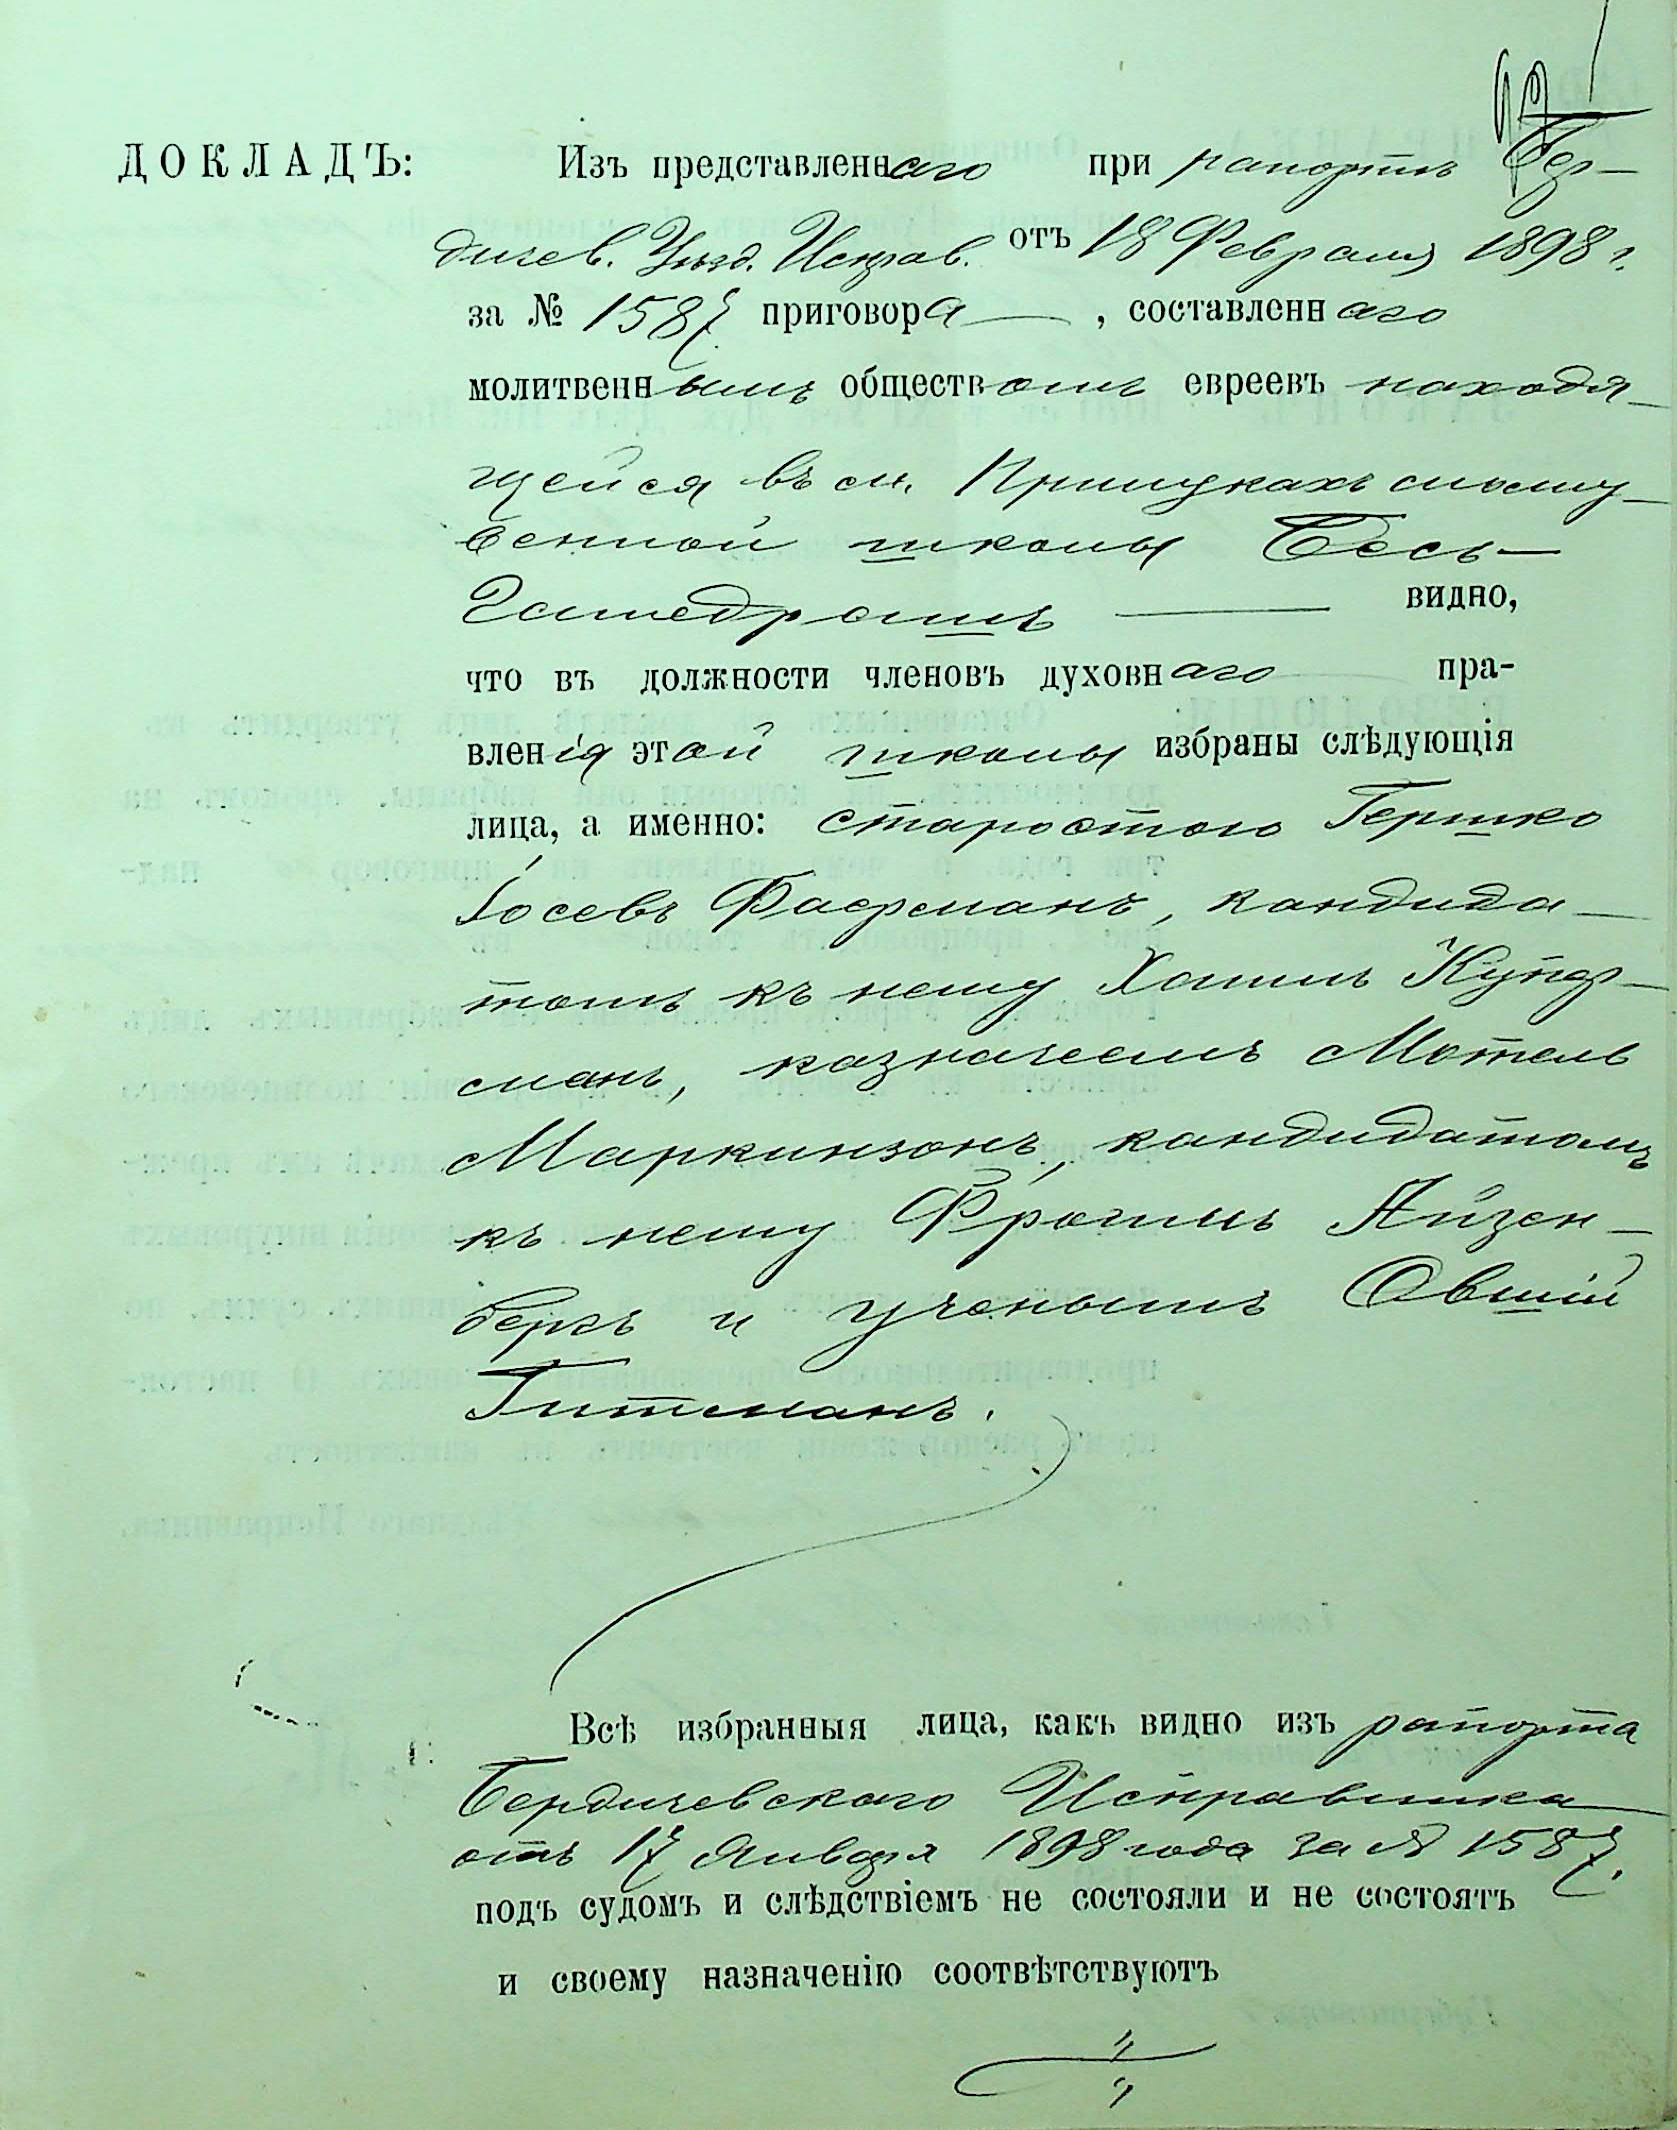 ДОКЛАДЪ: Изъ представленнаго при рапортѣ Бер-
дичев. Уѣзд. Исправ. отъ 18 Февраля 1898 г.
за № 1587 приговора, составленнаго
молитвеннымъ обществомъ евреевъ находя-
щейся въ м.
школы Бесъ-
Гамедрашъ — видно,
что въ должности членовъ духовнаго пра-
вленія этой школы избраны слѣдующія
лица, а именно: старостою Гершко
Іосевъ Фаерманъ, кандида-
томъ къ нему Хаимъ Купер-
манъ, казначеемъ Мотель
Маркинзонъ, кандидатомъ
къ нему Фроимъ Айзен-
бергъ и ученымъ Овшій
Гитманъ.
Всѣ избранныя лица, какъ видно изъ рапорта
Бердичевскаго Исправника
отъ 17 Января 1898 года за № 1587.
подъ судомъ и слѣдствіемъ не состояли и не состоятъ
и своему назначенію соотвѣтствуютъ